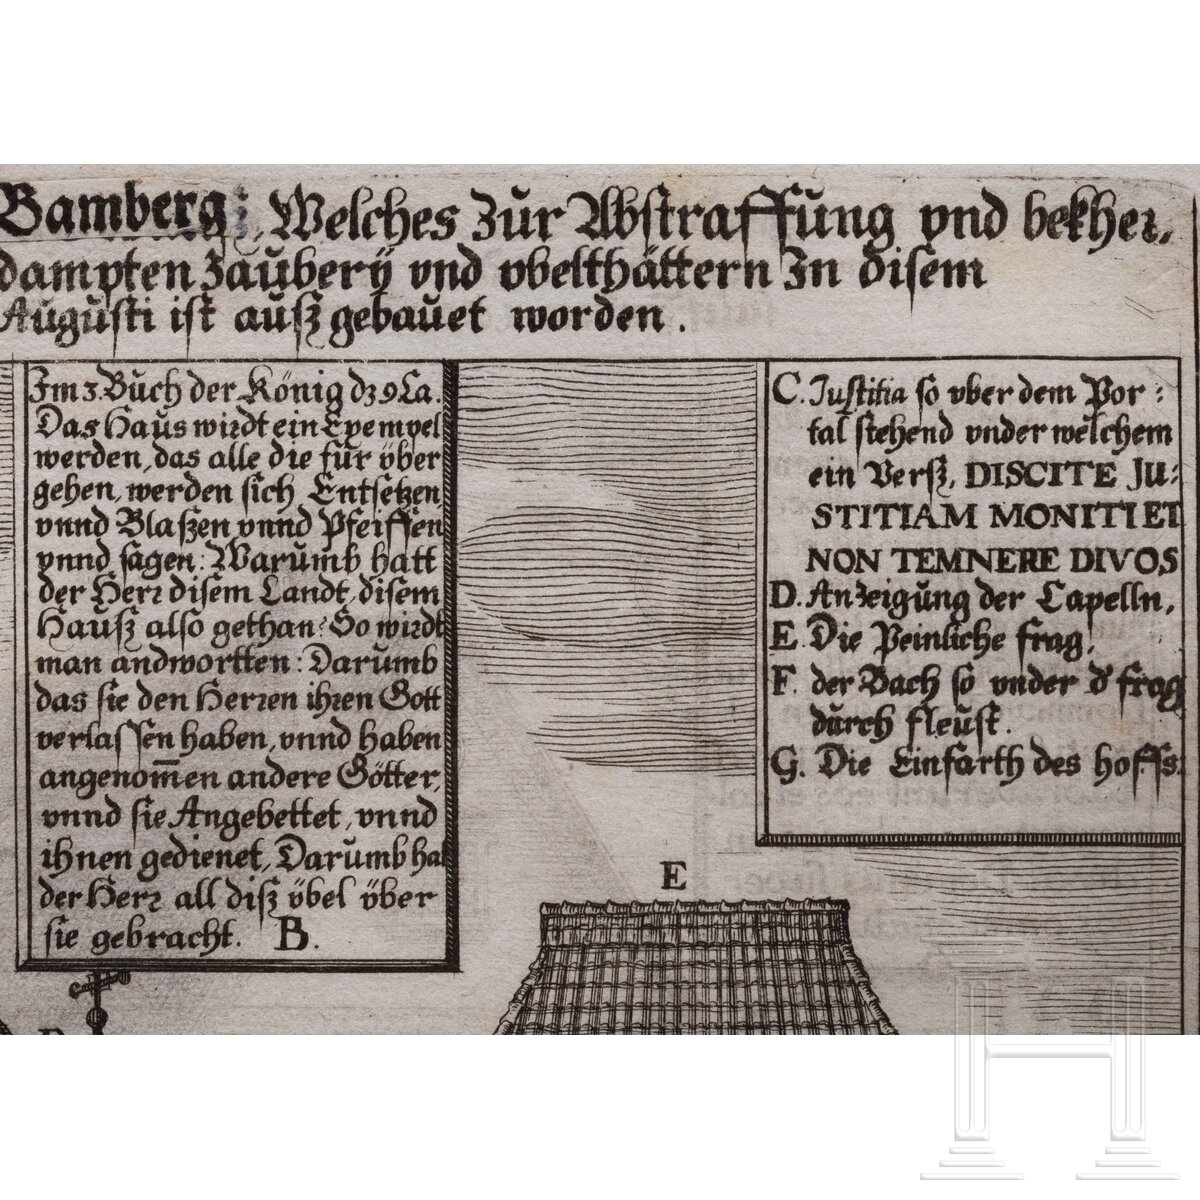 Bamberg; Welches zur Abstraffung vnd bekher,
dampten zaubery vnd vbelthättern In disem
Augusti ist außgebauet worden.
Im 3. Buch der König dz 9 Ca.
Das Haus wirdt ein Exempel
werden, das alle die für über
gehen, werden sich Entsetzen
vnnd Blaßen vnnd Pfeiffen
vnnd sagen: Warumb hatt
der Herr disem Landt, disem
Hauß also gethan: So wirdt
man andwortten: Darumb
das sie den Herren ihren Gott
verlassen haben, vnnd haben
angenom̄en andere Götter,
vnnd sie Angebettet, vnnd
ihnen gedienet, Darumb hat
der Herr all diß übel über
sie gebracht. B.
C. Iustitia so vber dem Por:
tal stehend vnder welchem
ein Verß, DISCITE JU:
STITIAM MONITI ET
NON TEMNERE DIVOS
D. Anzeigung der Capelln,
E. Die Peinliche frag,
F. der Bach so vnder d' frag
durch fleust.
G. Die Einfarth des hoffs.
E